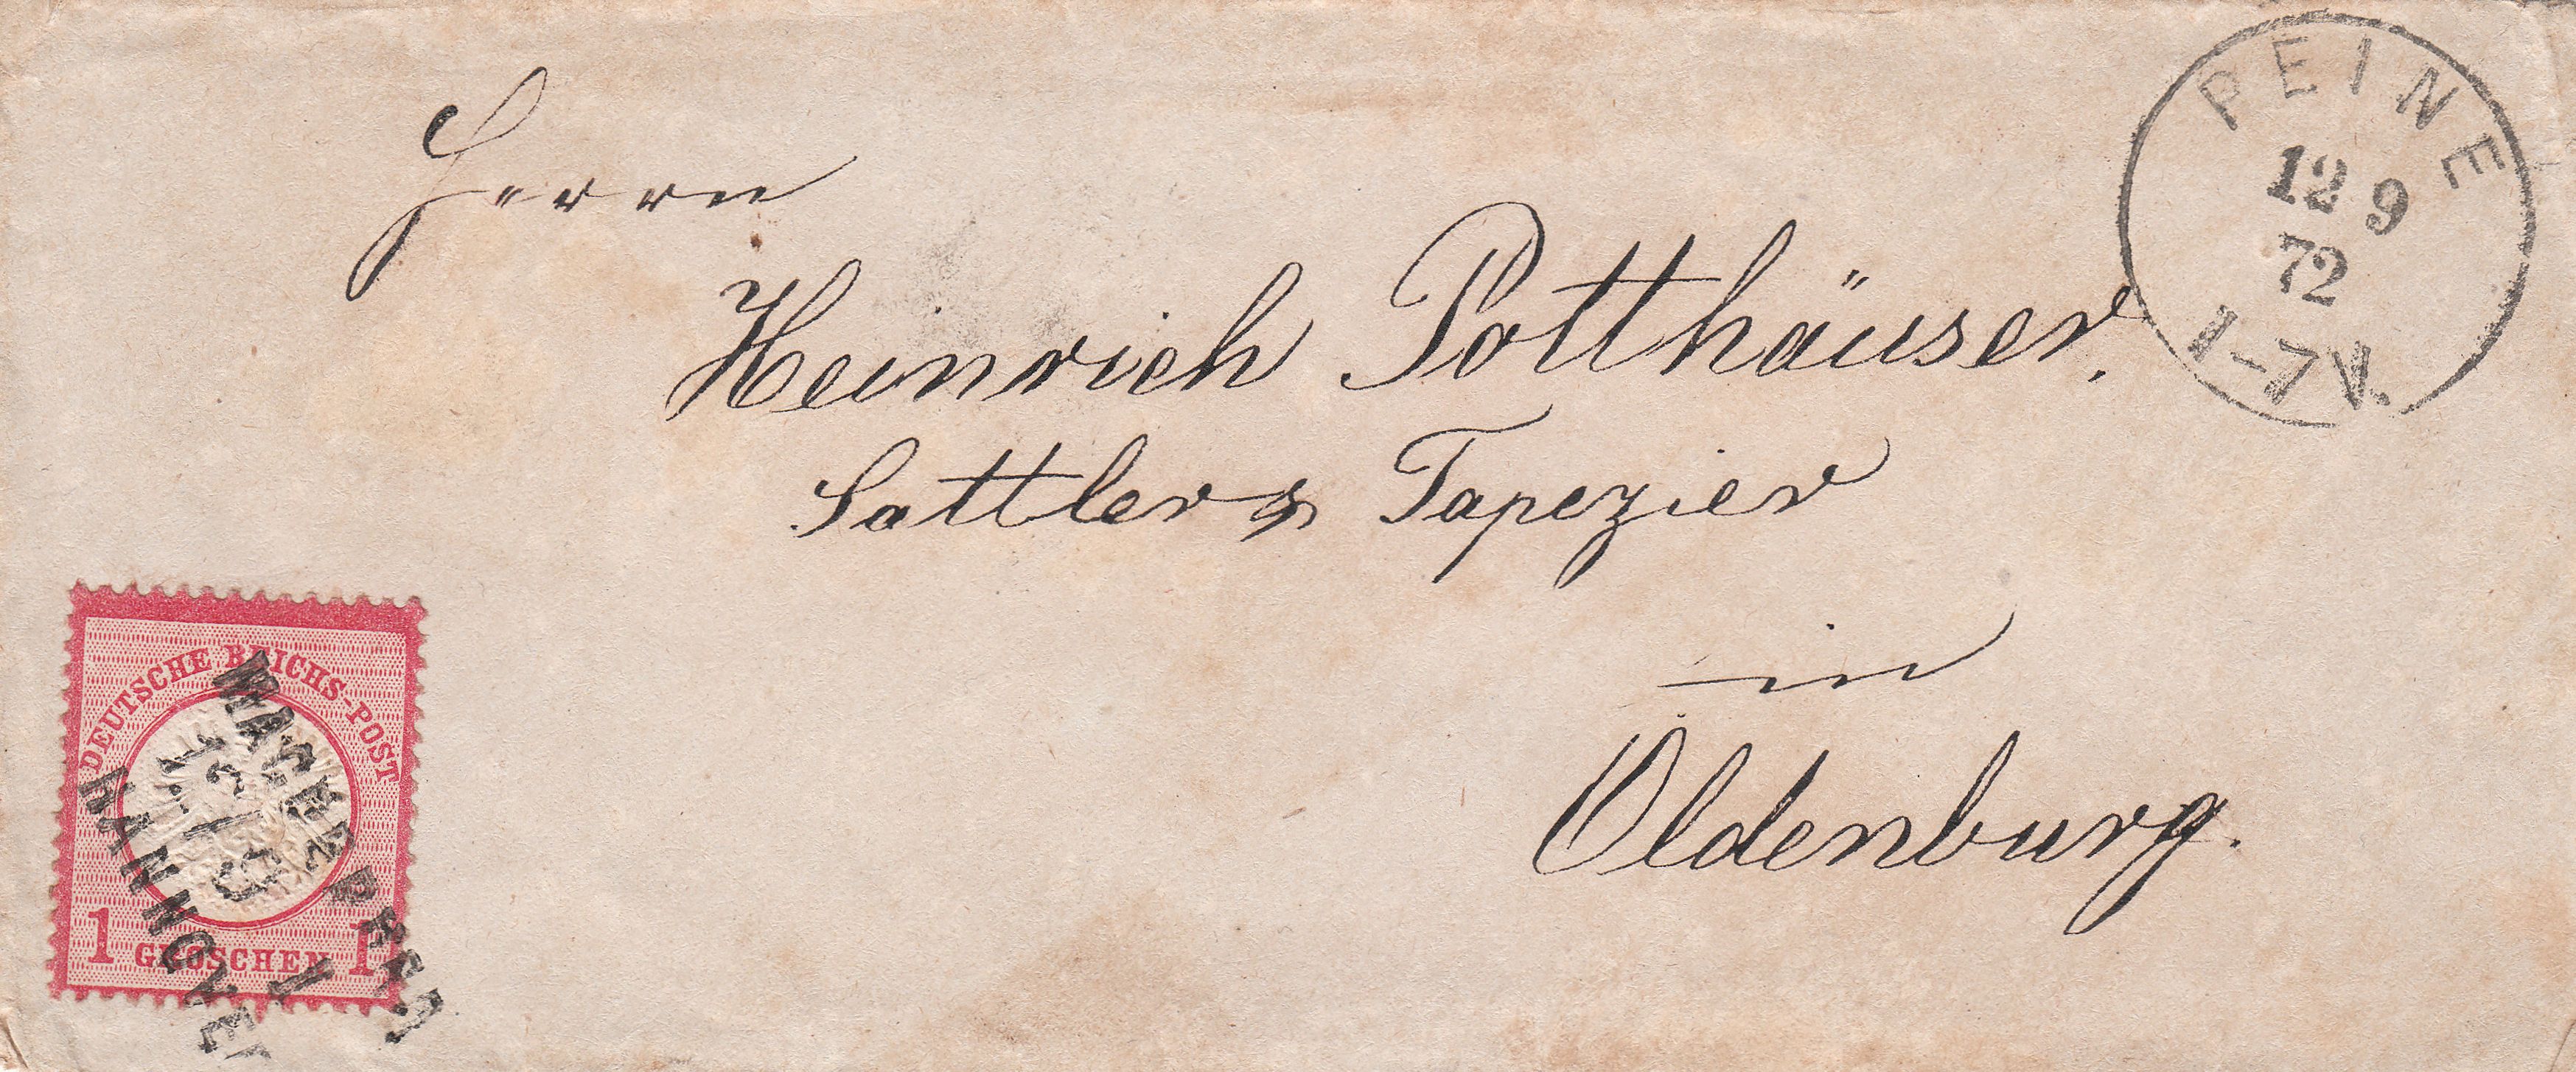 PEINE
12 9
72
1-7V.
Herrn
Heinrich Potthäuser.
Sattler & Tapezier
in
Oldenburg.
DEUTSCHE REICHS-POST
1 GROSCHEN 1
12 9
I